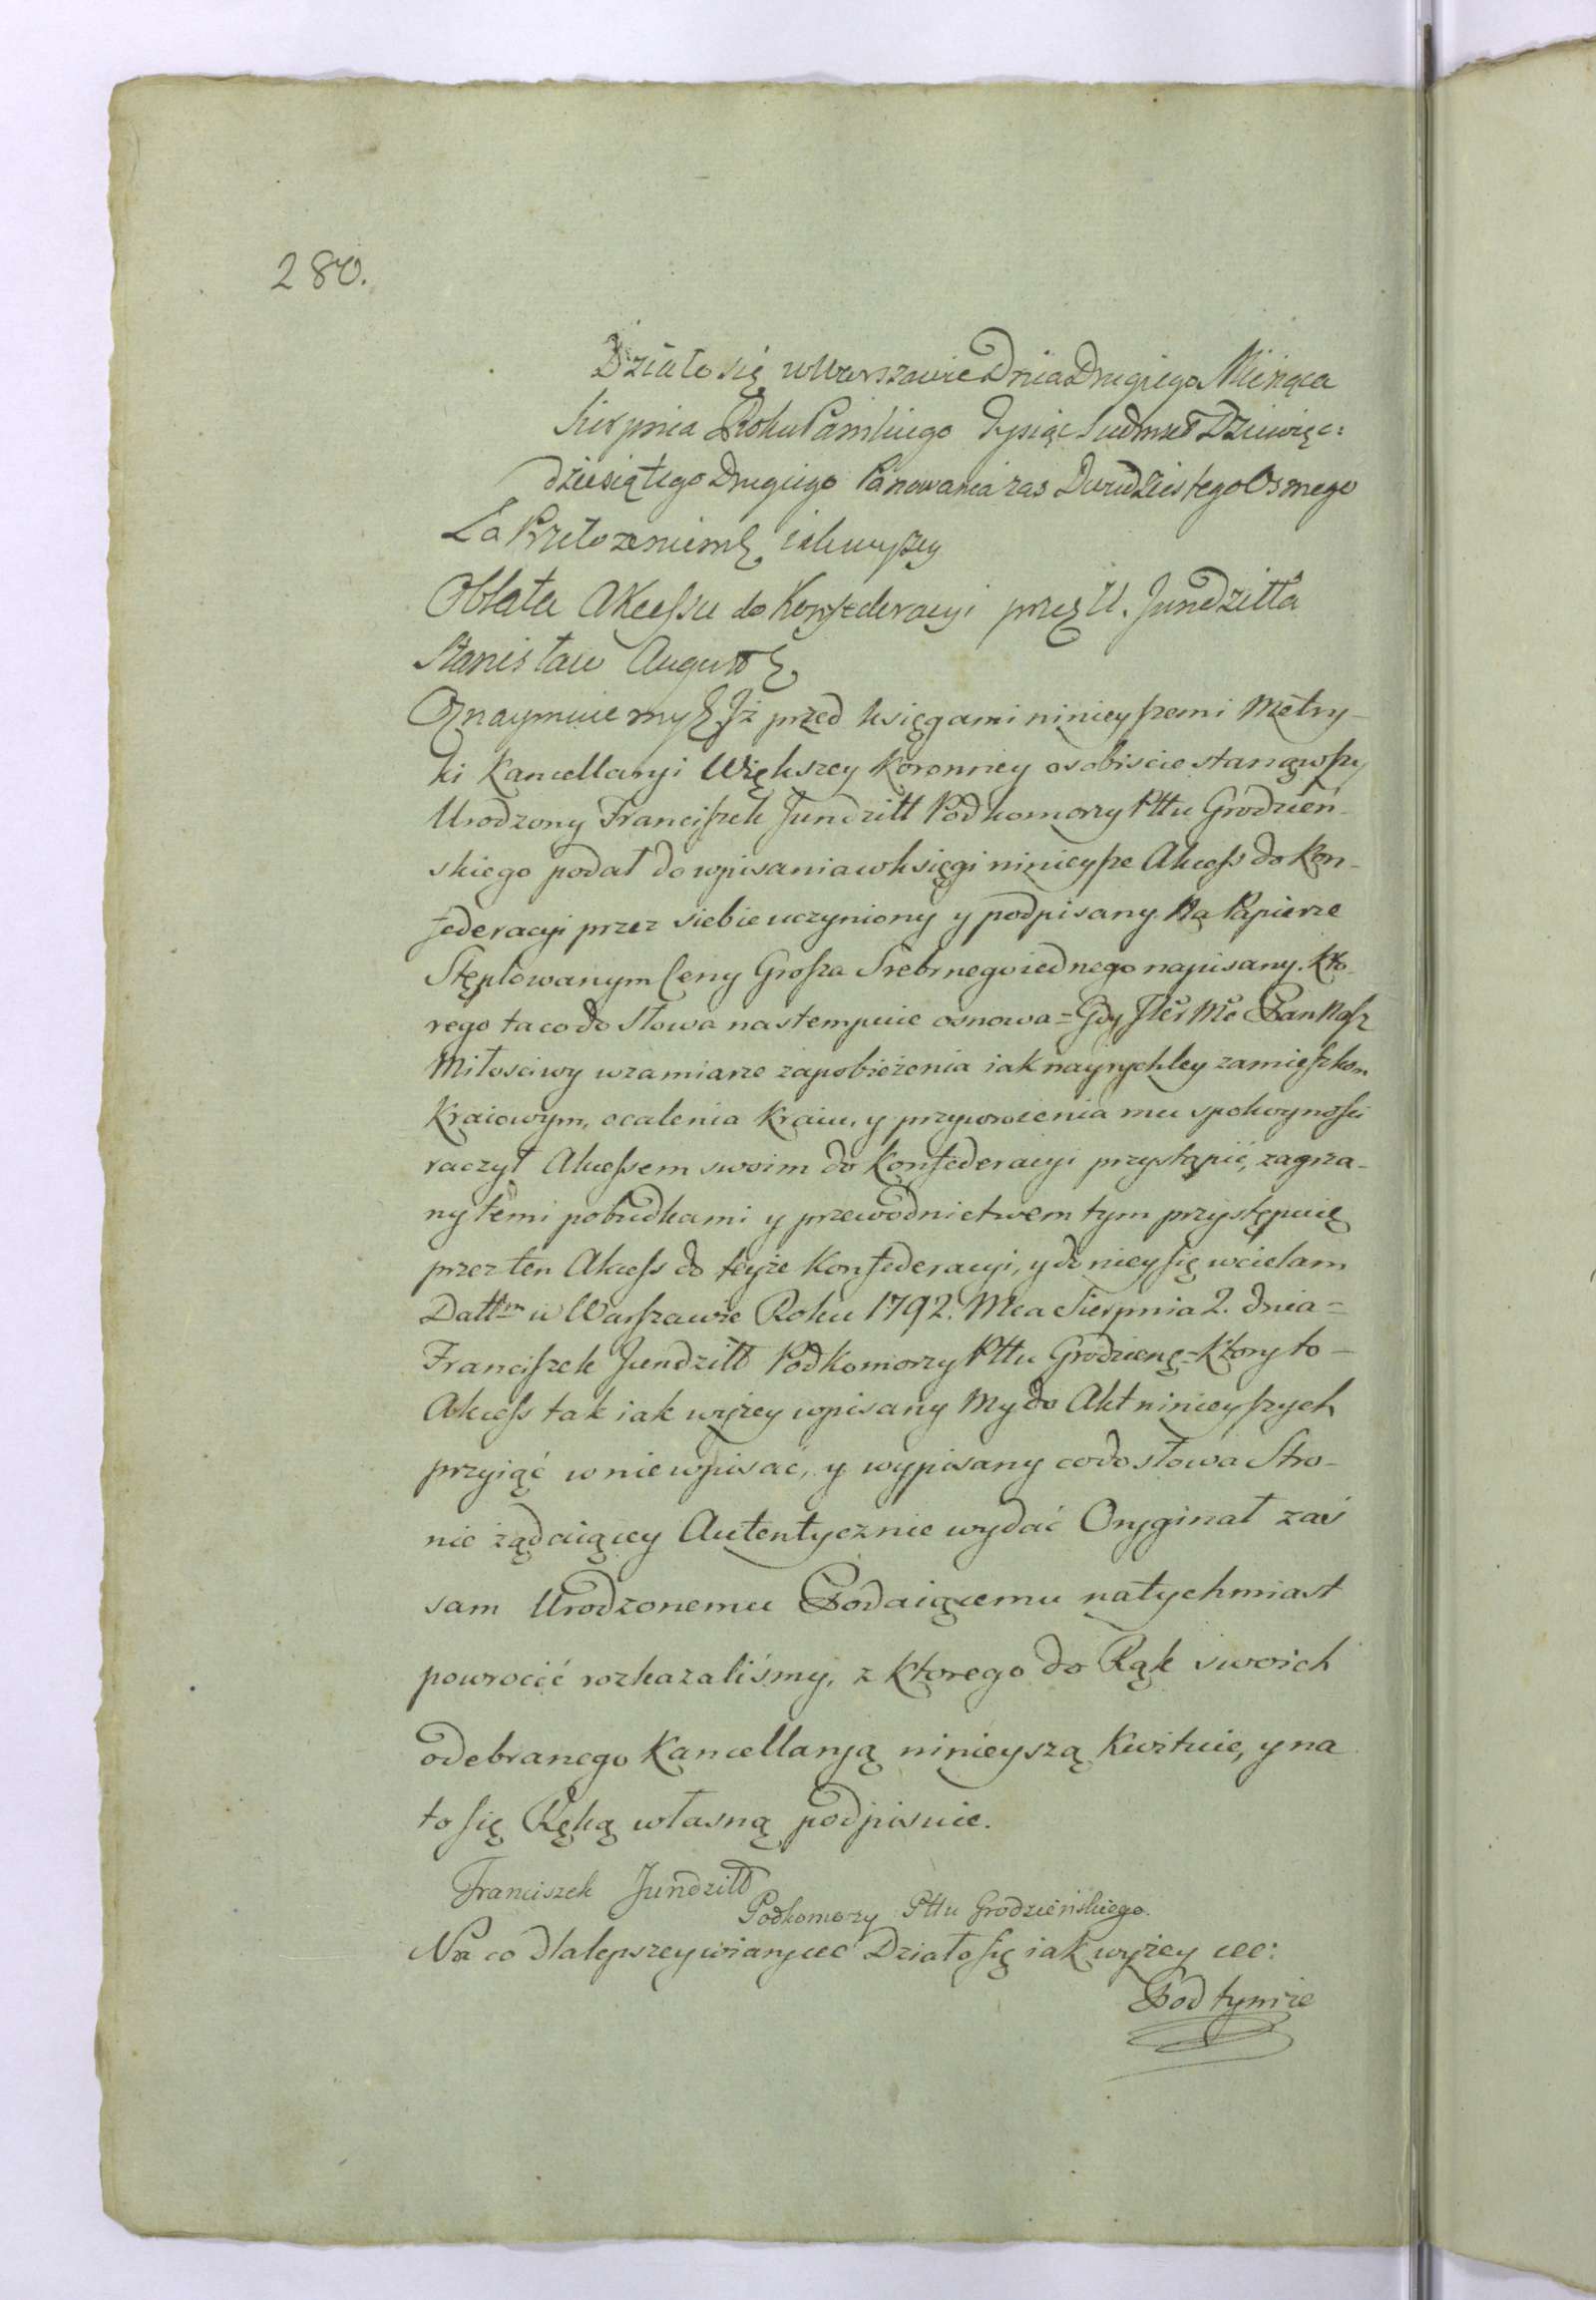 280.
Działo się w Warszawie Dnia Drugiego Miesiąca
Sierpnia Roku Pańskiego Tysiąc Siedmset Dziewięć:
dziesiątego Drugiego Panowania zas Dwudziestego Osmego
Za Przełożeniem iak wyżey
Oblata Akcessu do Konfederacyi przez U. Jundziłła
Stanisław August
Oznaymuiemy Iż przed księgami ninieyszemi Metry-
ki Kancellaryi Większey Koronney osobiscie stanąwszy
Urodzony Franciszek Jundziłł Podkomorzy Pttu Grodzień-
skiego podał do wpisania w księgi ninieysze Akcess do Kon-
federacyi przez siebie uczyniony y podpisany Na Papierze
Stęplowanym Ceny Grosza Srebrnego iednego napisany. Któ-
rego ta co do Słowa nastempuie osnowa = Gdy JKr Mc Pan Nasz
Miłosciwy w zamiarze zapobieżenia iak nayrychley zamieszkom
Kraiowym, ocalenia Kraiu, y przywrocenia mu spokoyności
raczył Akcessem swoim do Konfederacyi przystąpić, zagrza-
ny temi pobudkami y przewodnictwem tym przystępuię
przez ten Akcess do teyże Konfederacyi, y do niey się wcielam
Dattm w Warszawie Roku 1792. Mca Sierpnia 2. dnia =
Franciszek Jundziłł Podkomorzy Pttu Grodzieng = Ktory to -
Akcess tak iak wyżey wpisany My do Akt ninieyszych
przyiąć w nie wpisać, y wypisany co do słowa Stro-
nie żądaiącey Autentycznie wydać Oryginał zaś
sam Urodzonemu Podaiącemu natychmiast
powrocić rozkazaliśmy, z ktorego do Rąk swoich
odebranego Kancellaryą ninieyszą Kwituie, y na
to się Ręką własną podpisuie.
Franciszek Jundziłł
Podkomorzy Pttu Grodzieńskiego.
Na co dla lepszey wiary etc Działo się iak wyżey etc:
Pod tymże